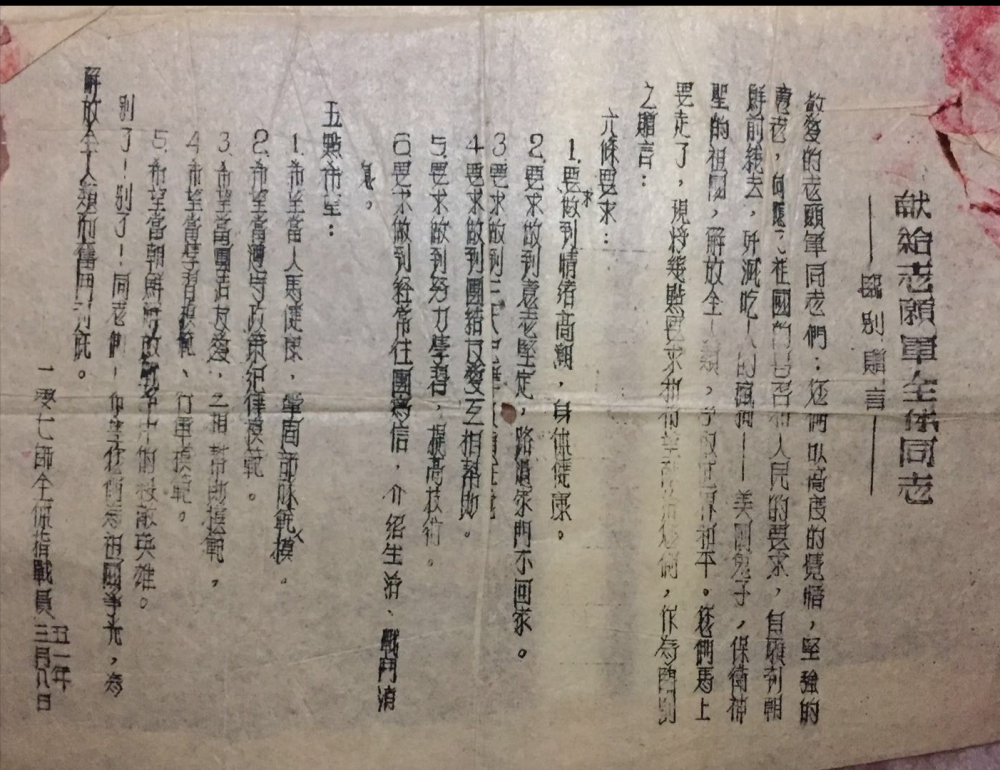 献給志願軍全体同志
——臨别贈言——
敬愛的志願軍同志們：您們以高度的覺悟，堅強的
意志，响應了祖國的号召和人民的要求，自願到朝
鮮前綫去，歼滅吃人的瘋狗——美國鬼子，保衛神
聖的祖國，解放全人類，争取世界和平。您們馬上
要走了，現将幾點要求和希望，作為臨别
之贈言：
六條要求：
1.要求做到情緒高潮，身体健康。
2.要求做到意志堅定，路過家門不回家。
3.要求做到三大
4.要求做到團結友愛互相幫助。
5.要求做到努力學習，提高技術。
6.要求做到經常往團寫信，介紹生活、戰鬥消
息。
五點希望：
1.希望當人馬健康，學習部隊模範。
2.希望當遵守政策紀律模範。
3.希望當團結友愛，互相幫助模範。
4.希望當學習模範、行軍模範。
5.希望當朝鮮解放戰争中的殺敵英雄。
别了！别了！同志們！為祖國争光，為
解放全人類而奮鬥到底。
一零七師全体指戰員 五一年三月八日